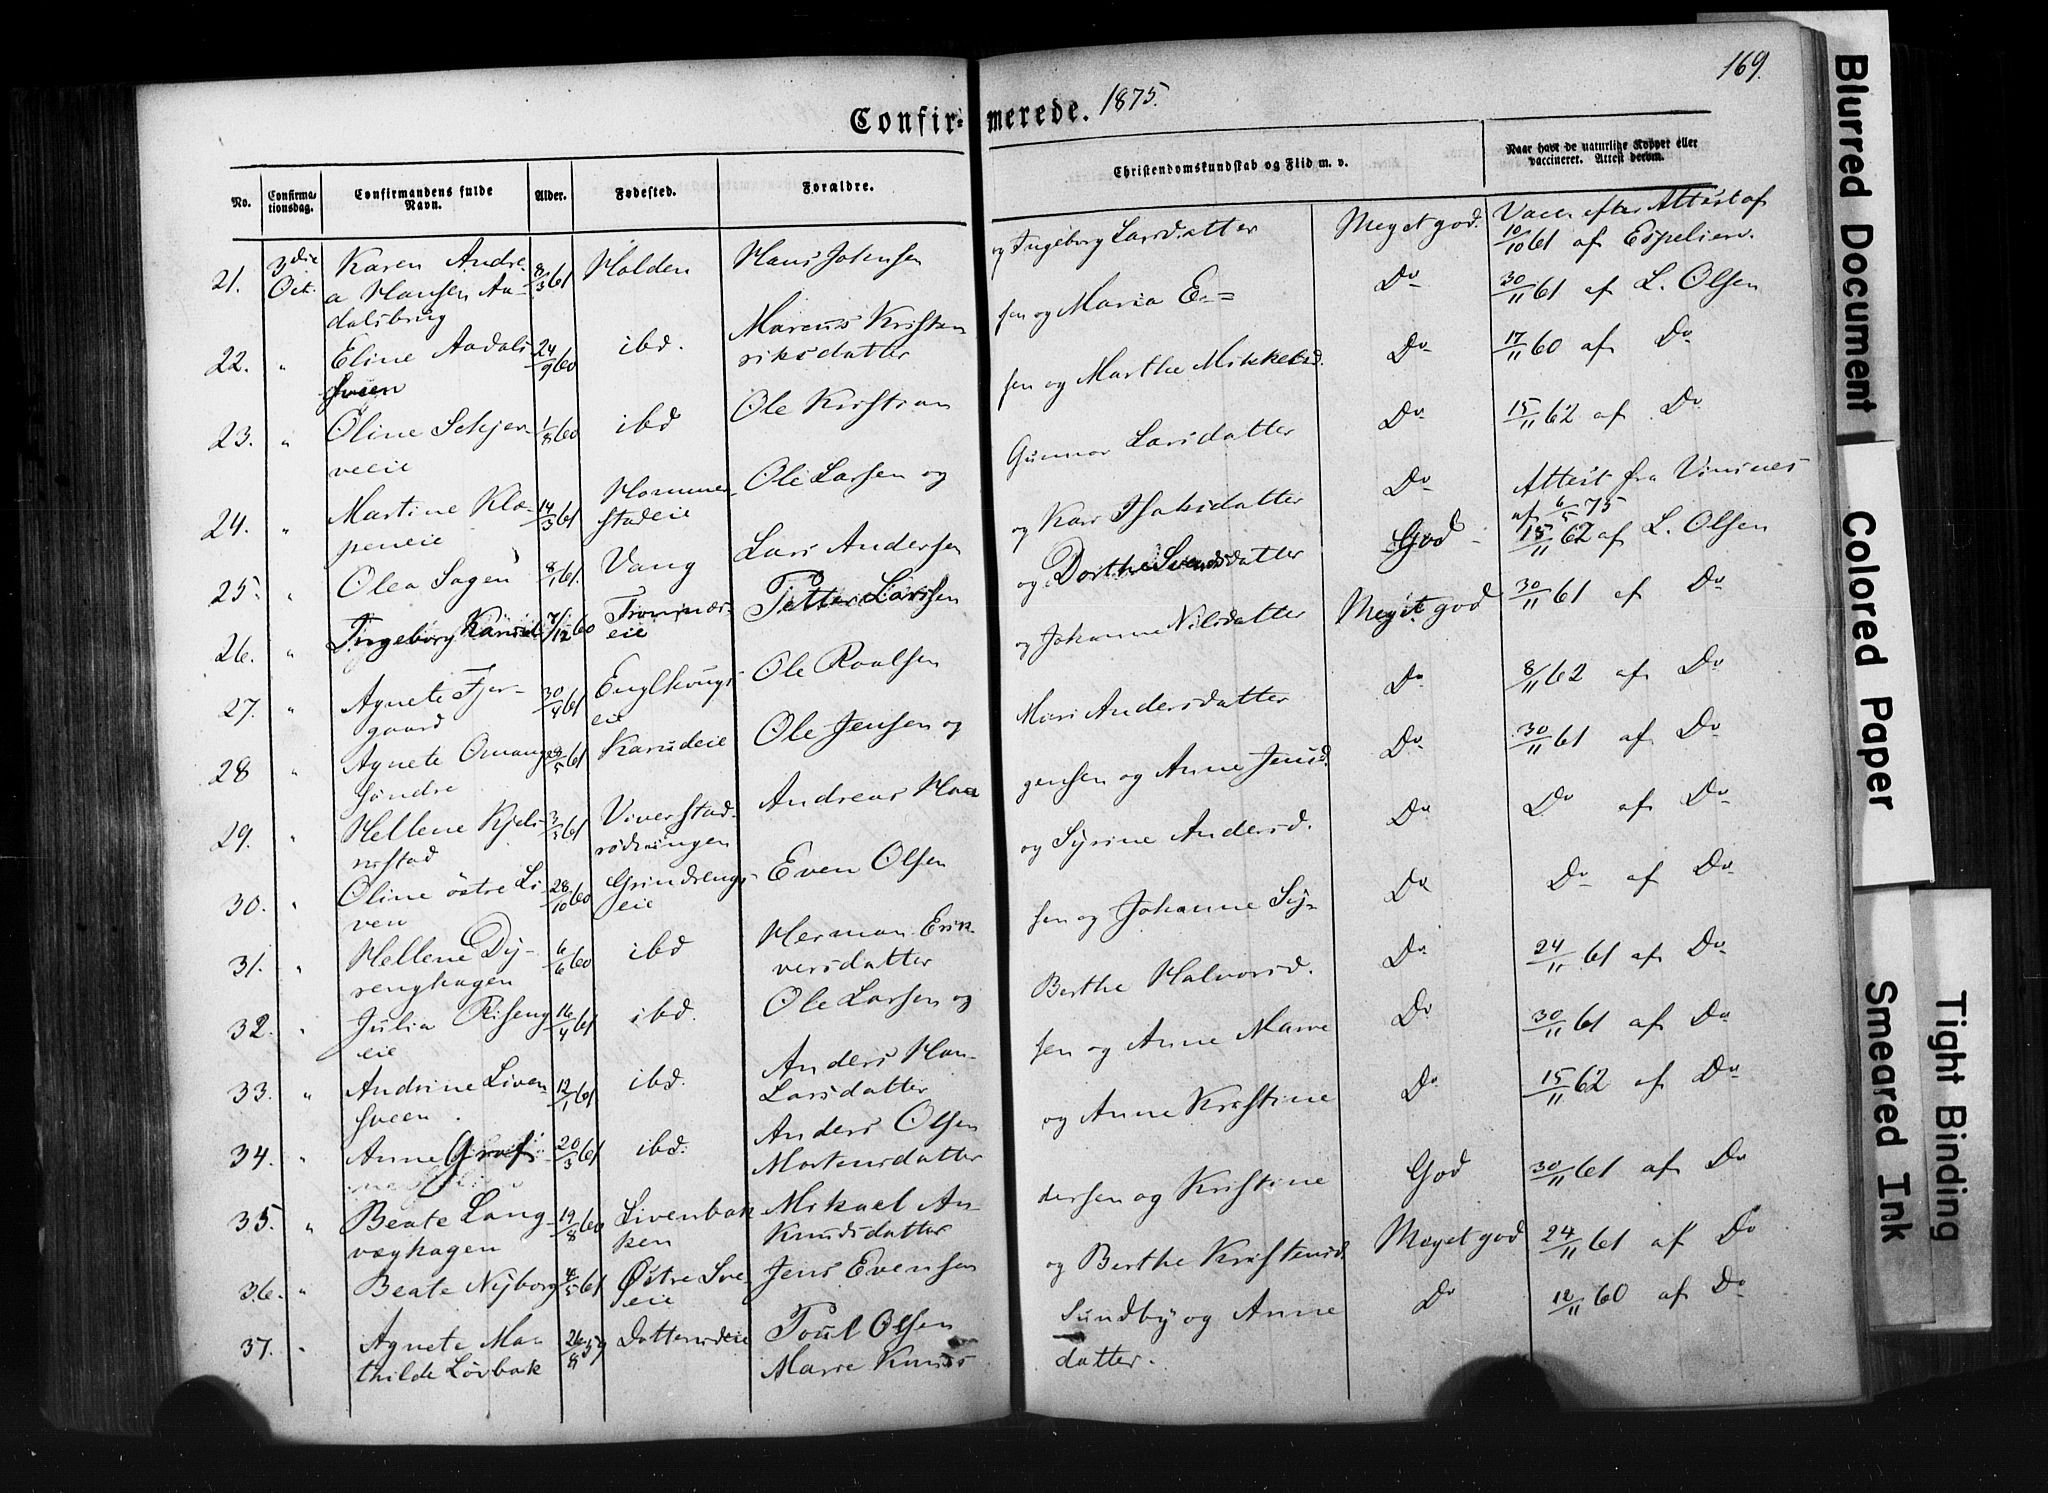 169.
Confirmerede. 1875.
No.
Confirmationsdag.
Confirmandens fulde Navn.
Alder.
Fødested.
Forældre.
Christendomskundskab og Flid m. v.
Naar havt de naturlige Kopper eller vaccineret. Attest derom.
21. 3die Oct. Karen Andrea Hansen Aadalsbrug 8/3 61 Holden Hans Johnsen og Ingeborg Larsdatter Meget god. Vacc. efter Attest af 10/10 61 af Espelien.
22. " Eline Aadalssveen 24/9 60 ibd. Marcus Kristensen og Maria Eriksdatter Do 30/11 61 af L. Olsen
23. " Oline Schjerveeie 1/8 60 ibd Ole Kristiansen og Marthe Mikkelsd. Do 17/11 60 af Do
24. " Martine Kloppeneie 14/3 61 Hommerstadeie Ole Larsen og Gunnor Larsdatter Do 15/11 62 af Do
25. " Olea Sagen 8/1 61. Vang Lars Andersen og Kari Isaksdatter Do Attest fra Vinsnes af 6/5 75
26. " Ingeborg Karud 7/12 60 Tromnæseie Petter Larsen og Dorthe Svendsdatter God 15/11 62 af L. Olsen
27. " Agnete Fjergaard 30/4 61 Englhougseie Ole Roalsen og Johanne Nilsdatter Meget god 30/11 61 af Do
28 " Agnete Omang søndre 28/5 61 Karudeie Ole Jensen og Mari Andersdatter Do 8/11 62 af Do
29. " Hellene Kjelsrustad 3/3 61 Viverstadrødningen Andreas Haagensen og Anne Jensd. Do 30/11 61 af Do
30. " Oline østre Liven 28/10 60 Grindrengseie Even Olsen og Syrine Andersd. Do Do af Do
31. " Hellene Dyrenghagen 6/6 60 ibd Herman Eriksen og Johanne Syversdatter Do Do af Do
32. " Julia Risengeie 16/4 61 ibd. Ole Larsen og Berthe Halvorsd. Do 24/11 61 af Do
33. " Andrine Livensveen. 12/1 61 ibd. Anders Hansen og Anne Marie Larsdatter Do 30/11 61 af Do
34. " Anne 20/3 61 ibd. Anders Olsen og Anne Kristine Mortensdatter Do 15/11 62 af Do
35. " Beate Langvæghagen 19/8 60 Livenbakken Mikael Andersen og Kristine Knudsdatter God 30/11 61 af Do
36. " Beate Nyborg 4/5 61 Østre Sveeie Jens Evensen og Berthe Kristensd. Meget god 24/11 61 af Do
37. " Agnete Mathilde Løvbak 26/8 59 Dottersdeie Poul Olsen Sundby og Anne Marie Knudsdatter. Do 12/11 60 af Do
Blurred Document
Colored Paper
Smeared Ink
Tight Binding